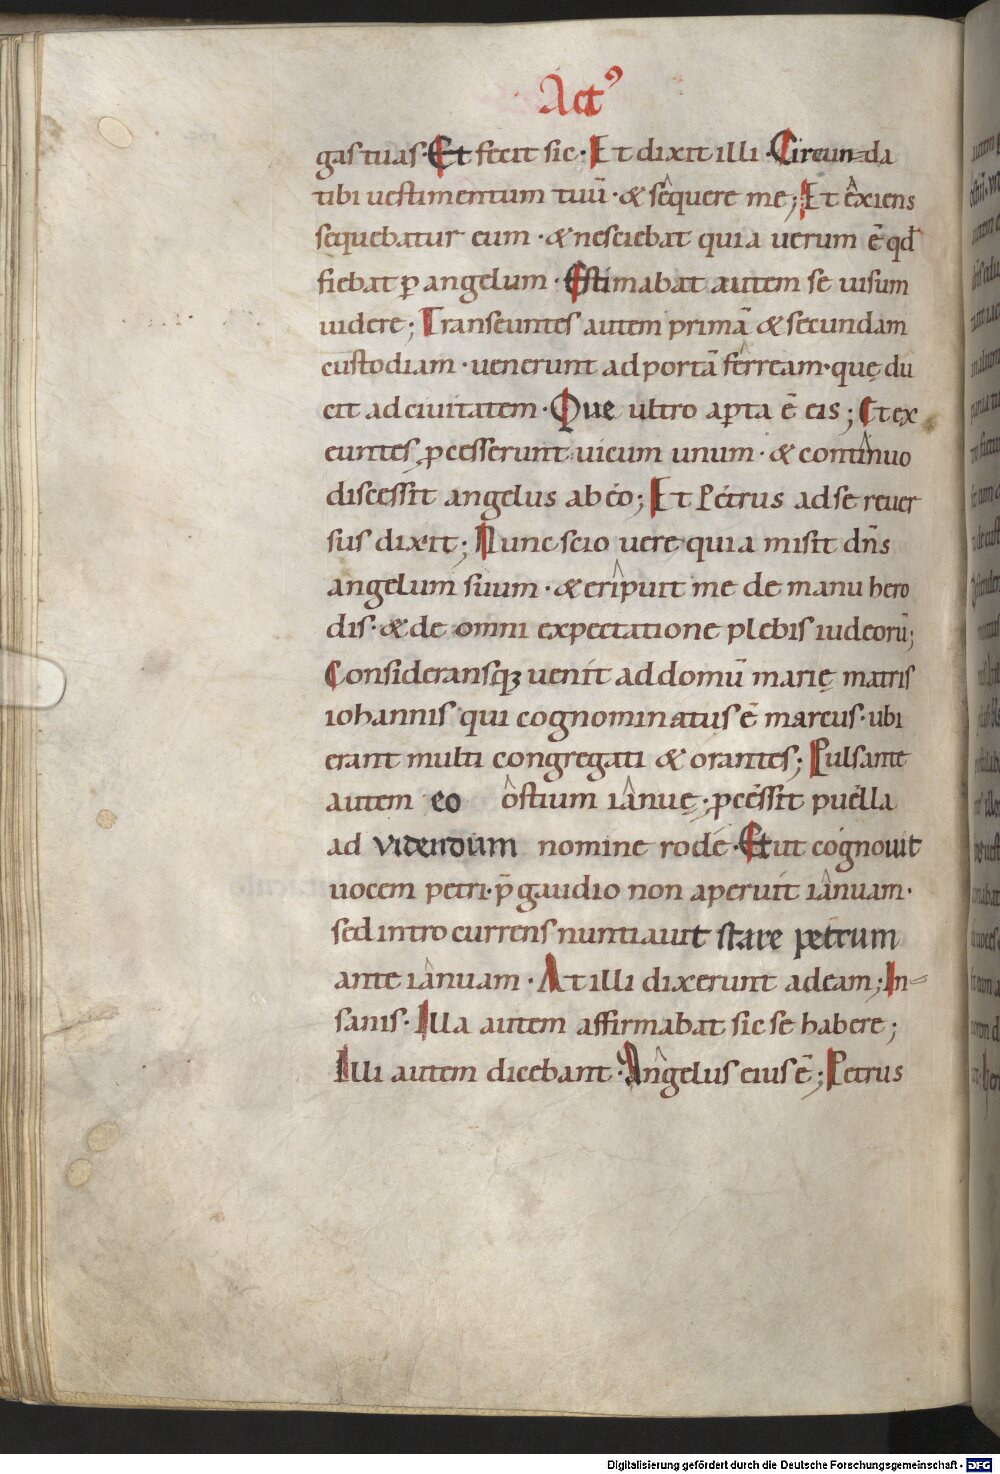 Actꝰ
gas tuas · Et fecit sic · Et dixit illi · Circun-da
tibi uestimentum tuū · & sequere me; Et exiens
sequebatur eum · & nesciebat quia uerum ē qđ
fiebat ꝑ angelum · Estimabat autem se uisum
uidere; Transeuntes autem primā & secundam
custodiam · uenerunt ad portā ferream · quę du
cit ad ciuitatem · Que ultro aꝑta ē eis; Et ex
euntes ꝓcesserunt uicum unum · & continuo
discessit angelus ab eo; Et Petrus ad se reuer
sus dixit; Nunc scio uere quia misit dn̄s
angelum suum · & eripuit me de manu hero
dis · & de omni expectatione plebis iudeorū;
Consideransqꝫ uenit ad domū marię matris
iohannis qui cognominatus ē marcus · ubi
erant multi congregati & orantes; Pulsante
autem eo ostium ianuę · ꝓcessit puella
ad videndum nomine rode · Et ut cognouit
uocem petri · p̄ gaudio non aperuit ianuam ·
sed intro currens nuntiauit stare petrum
ante ianuam · At illi dixerunt ad eam; In-
sanis · Illa autem affirmabat sic se habere;
Illi autem dicebant · Angelus eius ē; Petrus
Digitalisierung gefördert durch die Deutsche Forschungsgemeinschaft - DFG